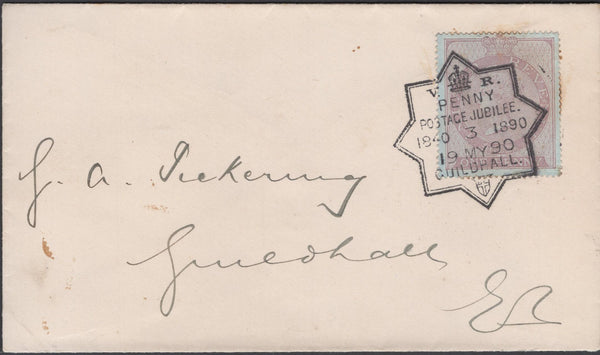 V. R.
PENNY
POSTAGE JUBILEE.
1840 3 1890
19 MY 90
GUILDHALL.
G. A. Pickering
Guildhall